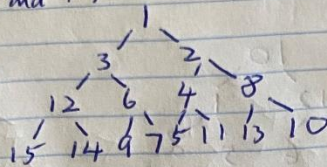 1
3 2
12 6 4 8
15 14 9 7 5 11 13 10